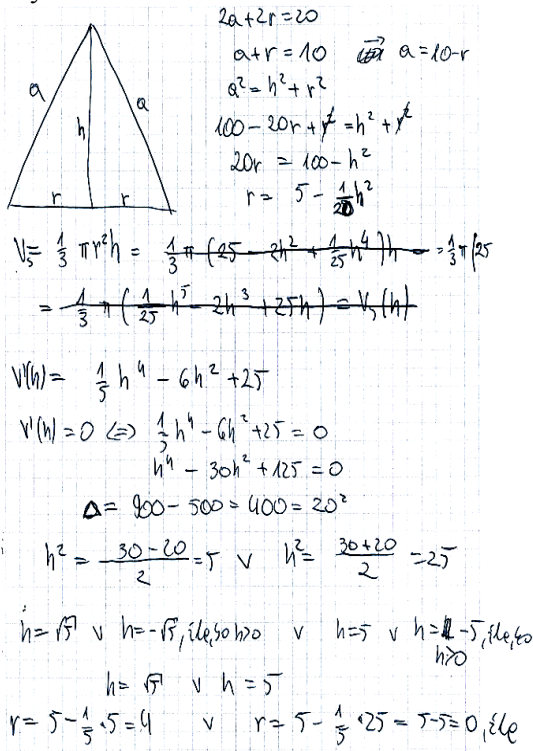 2a+2r=20
a+r=10 a=10-r
a²=h²+r²
100-20r+r²=h²+r²
20r = 100-h²
r = 5-1/20h²
a a
h
r r
V = 1/3 πr²h = 1/3 π(25-2h²+1/25h⁴)h = 1/3π(25
= 1/3 π(1/25 h⁵-2h³+25h) = V(h)
V'(h) = 1/5 h⁴-6h²+25
V'(h)=0 ⇔ 1/5h⁴-6h²+25=0
h⁴-30h²+125=0
Δ=900-500=400=20²
h² = (30-20)/2 = 5 ∨ h² = (30+20)/2 = 25
h=√5 ∨ h=-√5, źle, bo h>0 ∨ h=5 ∨ h=-5, źle, bo
h>0
h=√5 ∨ h=5
r=5-1/5·5=4 ∨ r=5-1/5·25=5-5=0, źle